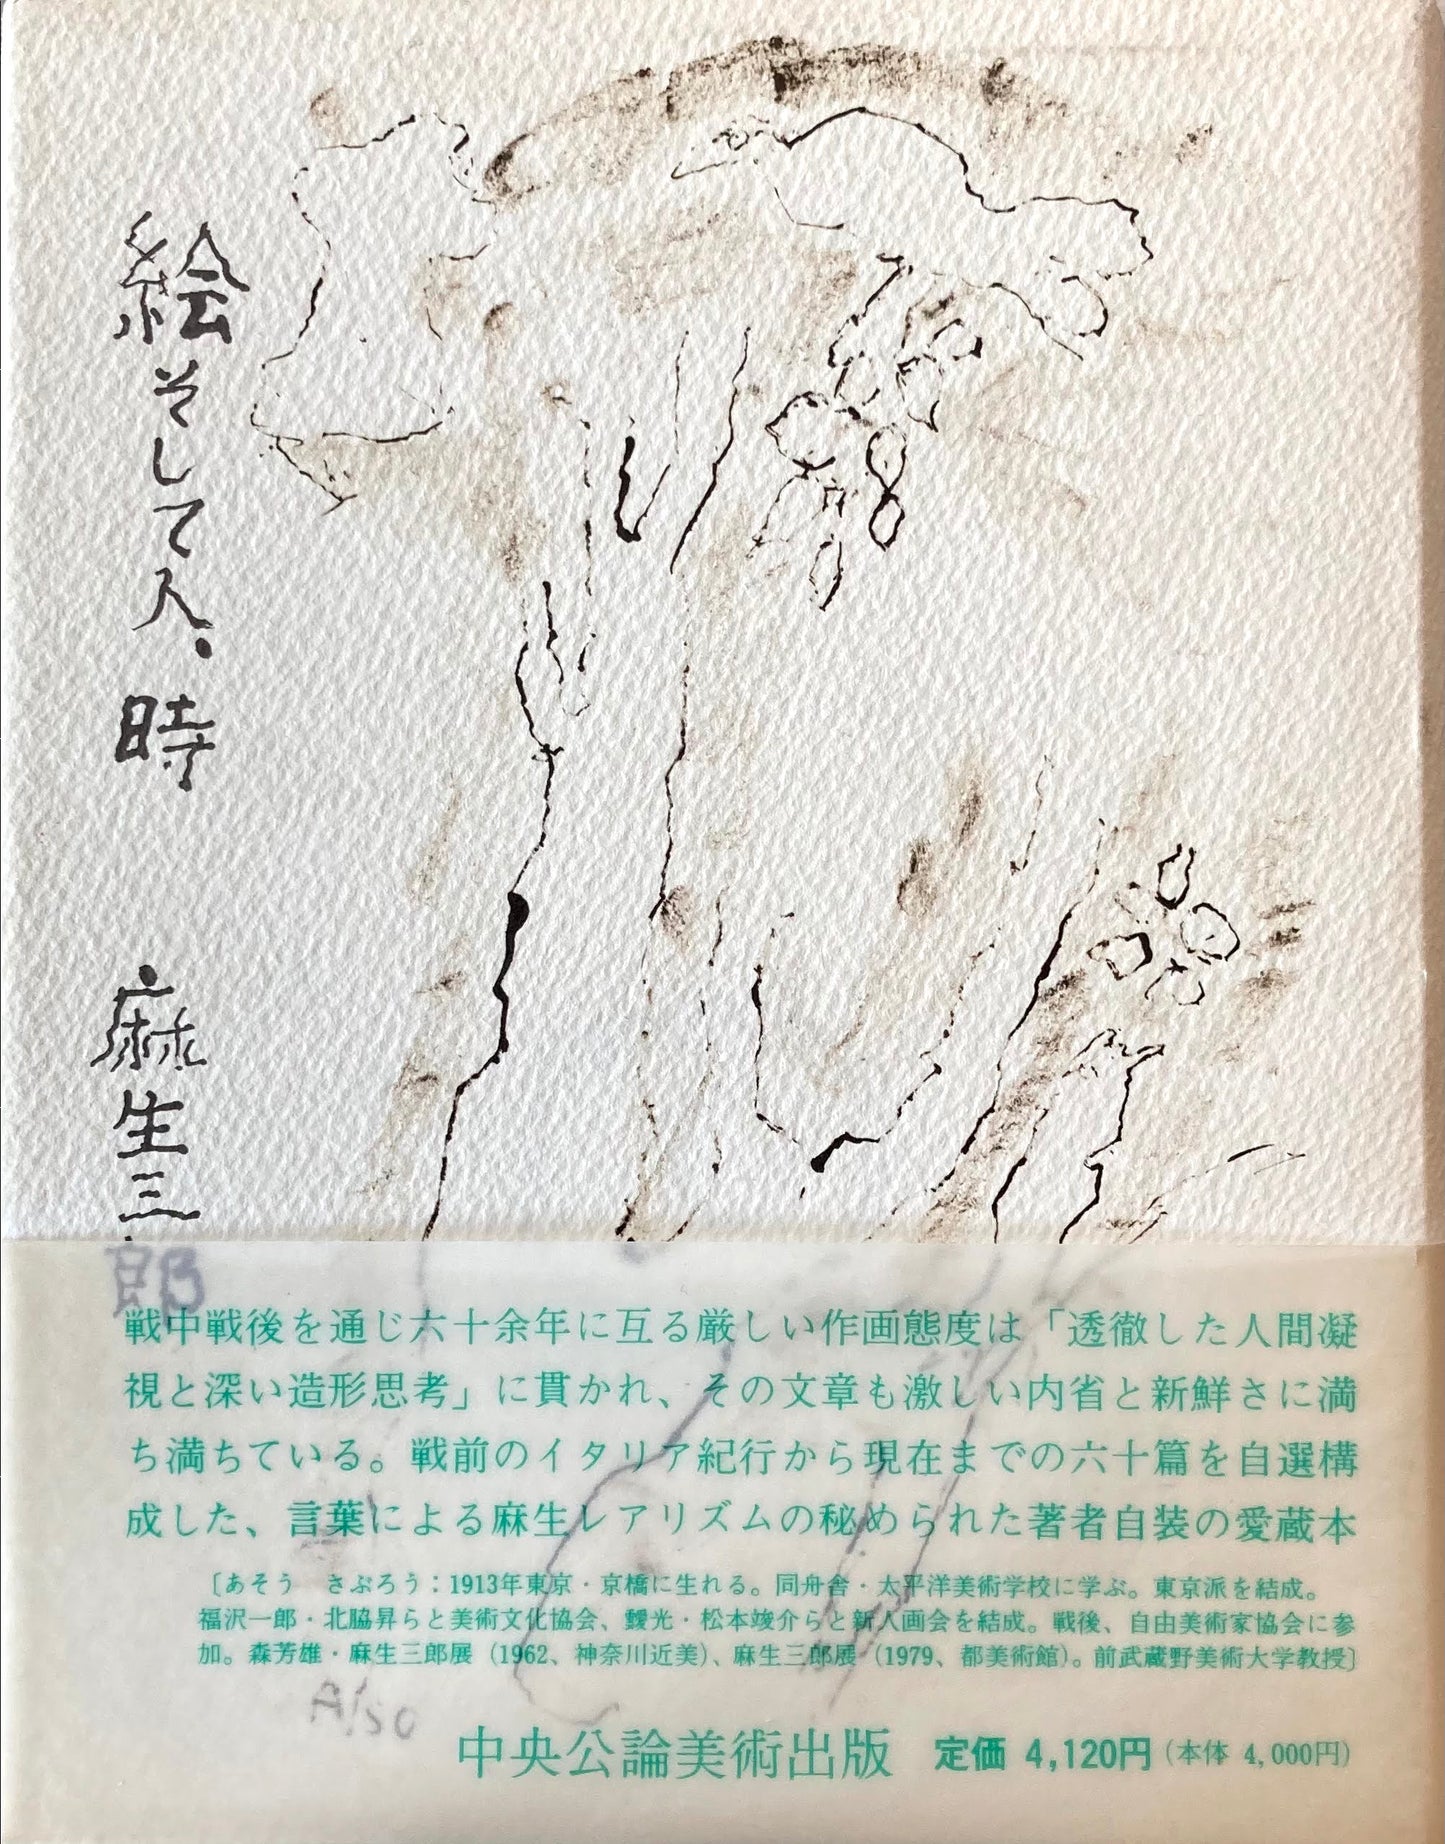 絵そして人、時
麻生三郎
戦中戦後を通じ六十余年に亙る厳しい作画態度は「透徹した人間凝
視と深い造形思考」に貫かれ、その文章も激しい内省と新鮮さに満
ち満ちている。戦前のイタリア紀行から現在までの六十篇を自選構
成した、言葉による麻生レアリズムの秘められた著者自装の愛蔵本
〔あそう　さぶろう：1913年東京・京橋に生れる。同舟舎・太平洋美術学校に学ぶ。東京派を結成。
福沢一郎・北脇昇らと美術文化協会、靉光・松本竣介らと新人画会を結成。戦後、自由美術家協会に参
加。森芳雄・麻生三郎展（1962、神奈川近美）、麻生三郎展（1979、都美術館）。前武蔵野美術大学教授〕
Aso
中央公論美術出版　定価 4,120円（本体 4,000円）